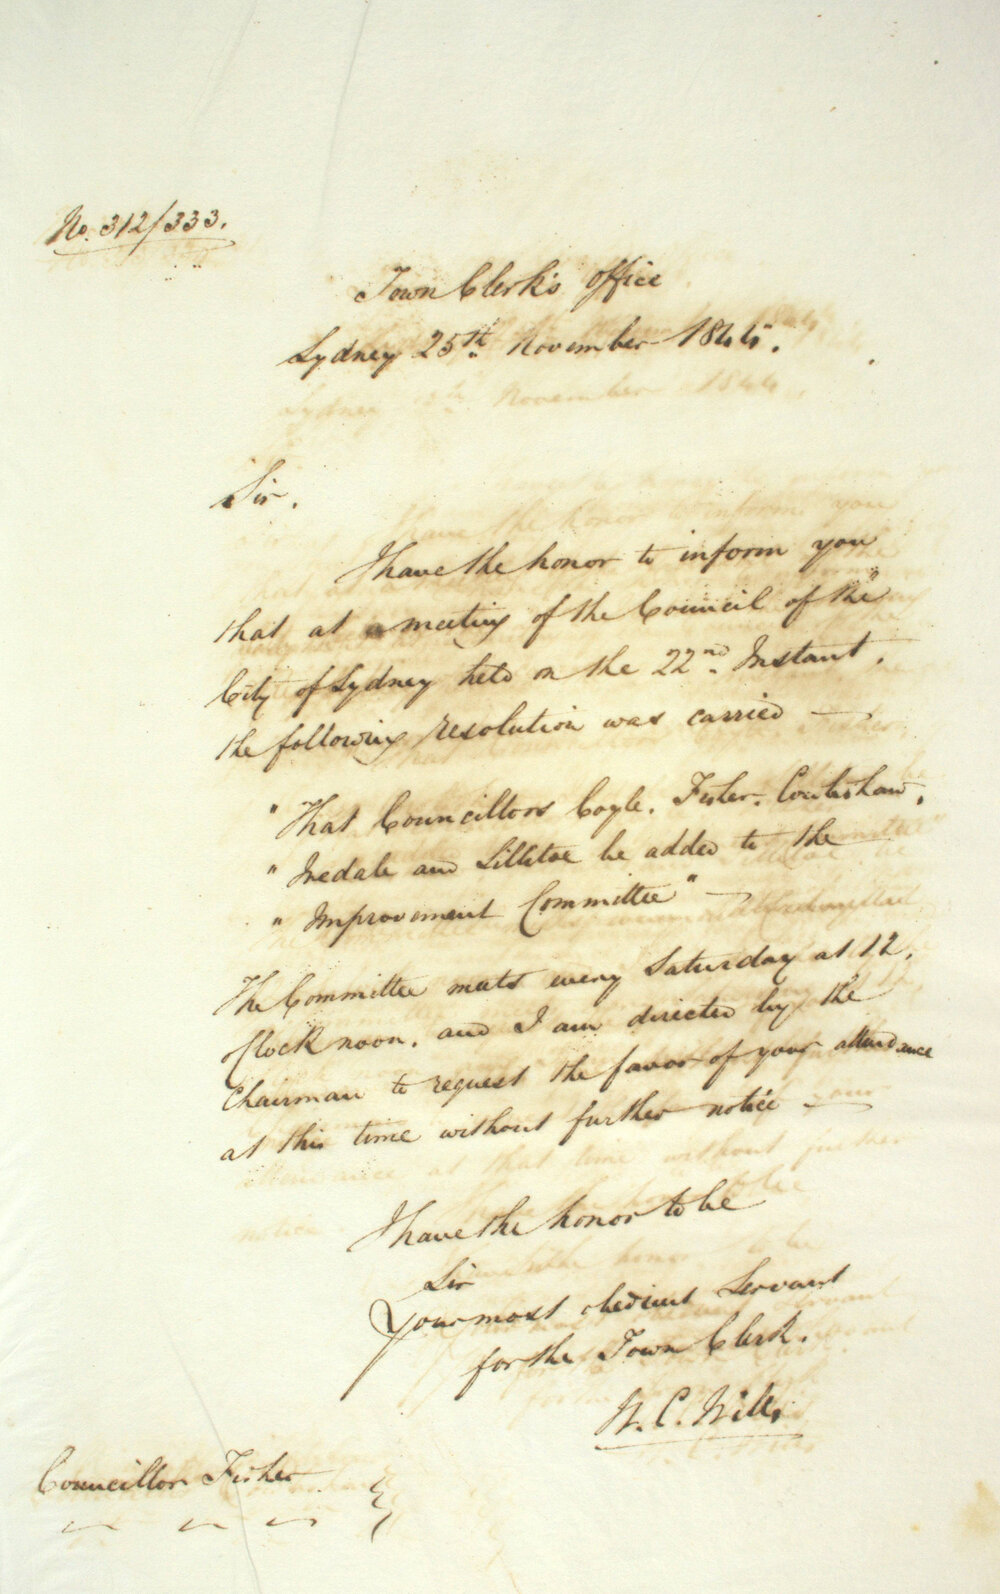 No. 312/333.
Town Clerk's Office
Sydney 25th. November 1844.
Sir.
I have the honor to inform you
that at a meeting of the Council of the
City of Sydney held on the 22nd. Instant.
the following resolution was carried —
" That Councillors Coyle. Fisher. Coulshaw.
" Iredale and be added to the
" Improvement Committee" —
The Committee meets every Saturday at 12.
O'Clock noon. and I am directed by the
Chairman to request the favor of your attendance
at this time without further notice —
I have the honor to be
Sir
Your most obedient Servant
for the Town Clerk.
W. C. Wills
Councillor Fisher